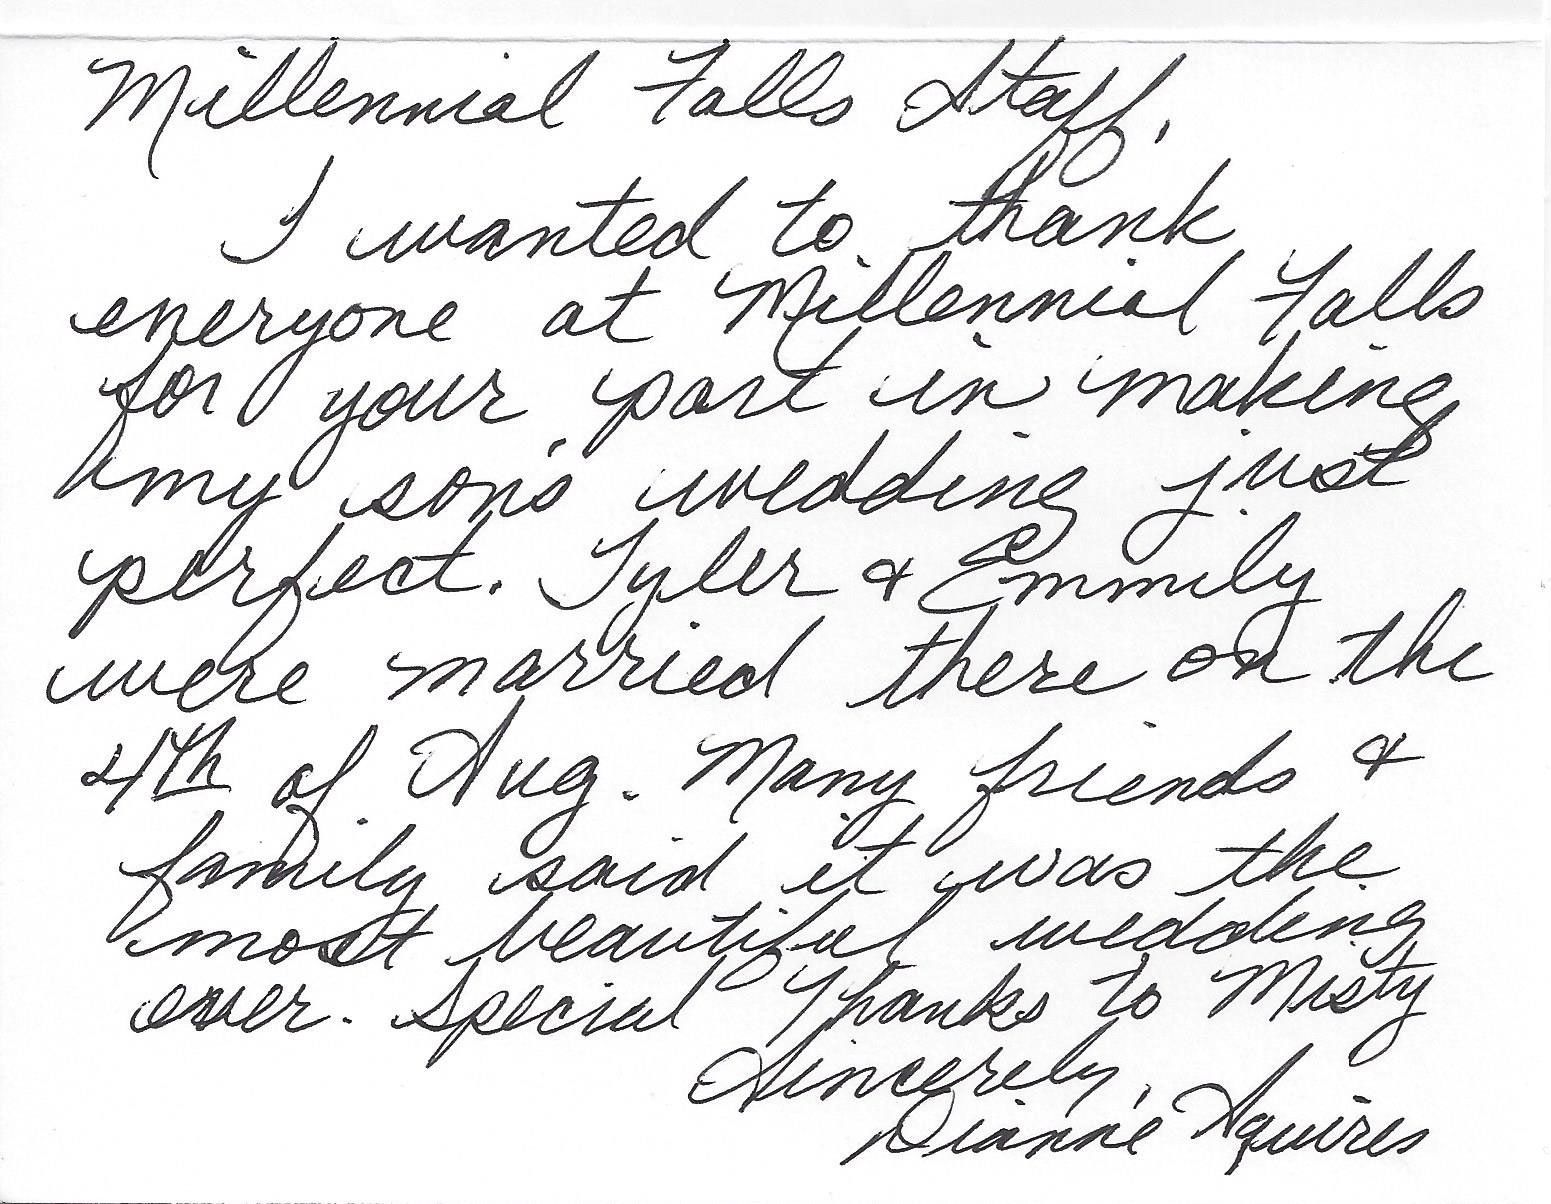 Millennial Falls Staff,
I wanted to thank
everyone at Millennial Falls
for your part in making
my son's wedding just
perfect. Tyler & Emmily
were married there on the
4th of Aug. Many friends &
family said it was the
most beautiful wedding
ever. Special Thanks to Misty
Sincerely,
Dianne Squires